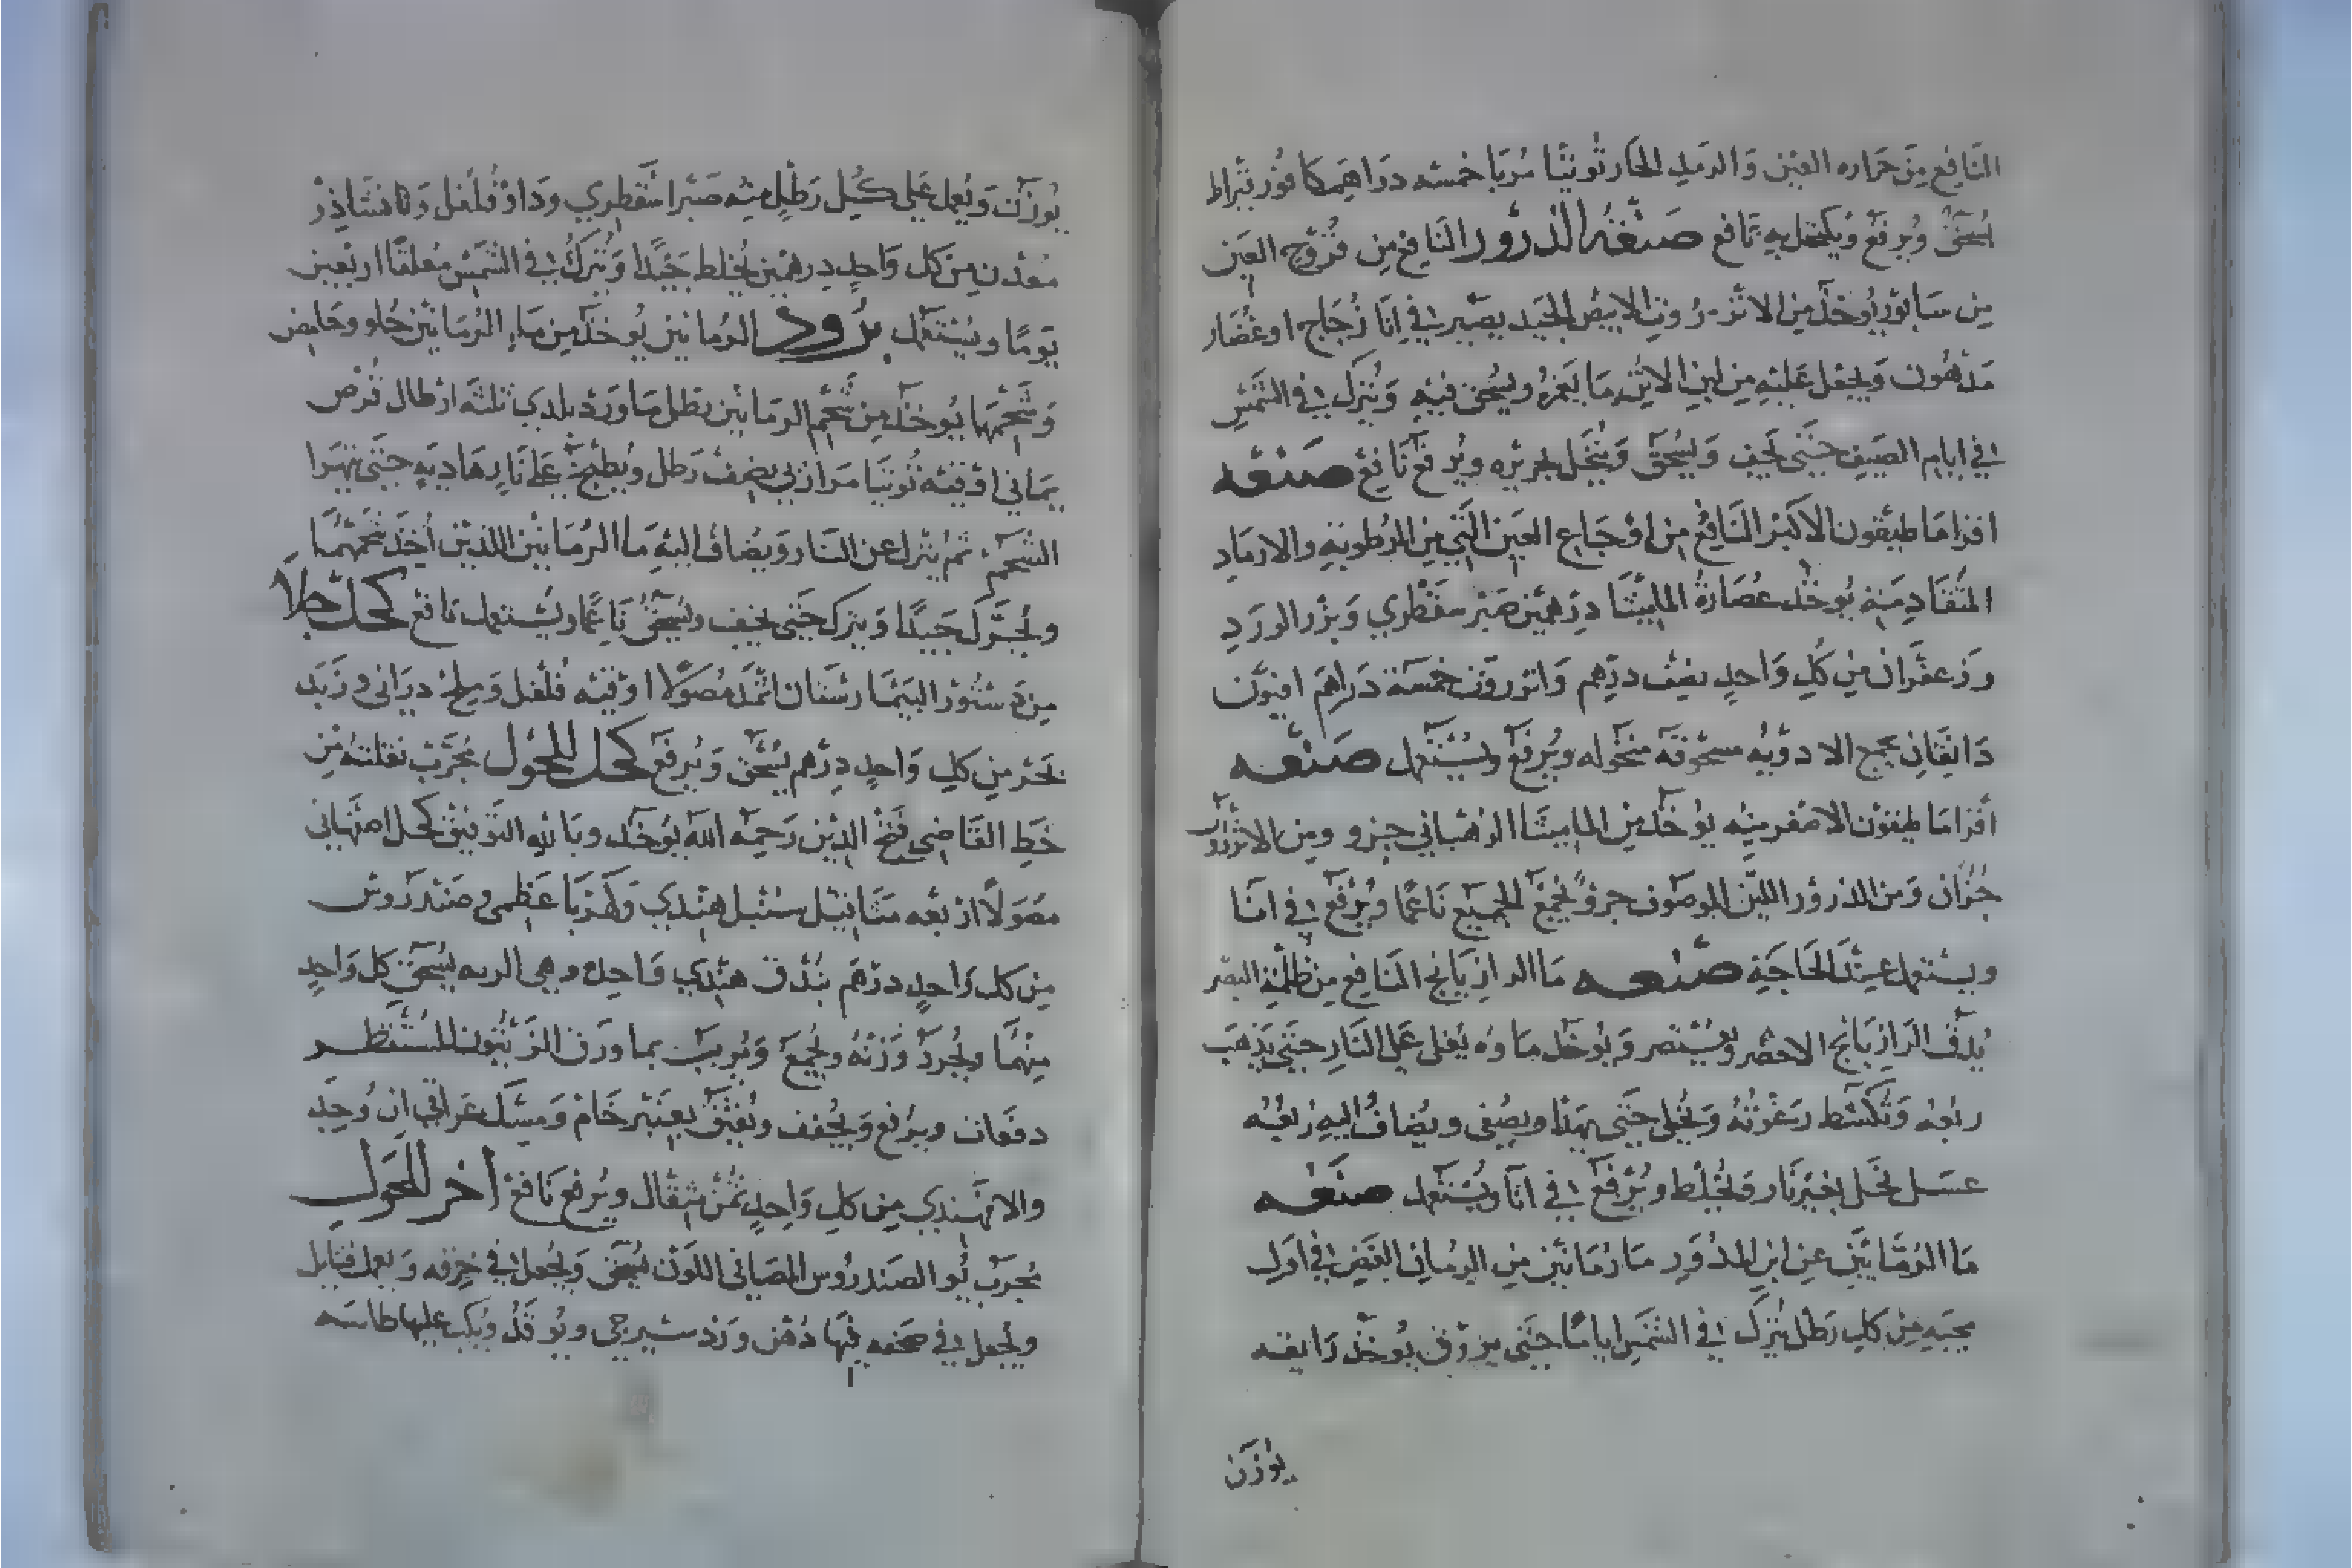 النافع من حراره العين والرمد الحار توتيا مربا خمسه دراهم كافور قيراط
يسحق ويرفع ويكتحل به نافع صنعة الذرور النافع من قروح العين
من سابور يوخذ من الانزروت الابيض الجيد يصير في انا زجاج او غضار
مدهون ويجعل عليه من لبن الاتن ما يغمره ويسحق فيه ويترك في الشمس
في ايام الصيف حتى يجف ويسحق وينخل بحريره ويرفع نافع صنعه
اقراماطيقون الاكبر النافع من اوجاع العين التي من الرطوبه والارماد
المتقادمه يوخذ عصارة الماميثا درهمين صبر سقطري وبزر الورد
وزعفران من كل واحد نصف درهم وانزروت خمسة دراهم افيون
دانقان يجمع الادويه مسحوقه منخوله ويرفع ويستعمل صنعه
اقراماطيقون الاصغر منه يوخذ من الماميثا الرهباني جزو ومن الانزروت
جزان ومن الذرور اللين الموصوف جزو يجمع الجميع ناعما ويرفع في انا
ويستعمل عند الحاجة صنعه ما الرازيانج النافع من ظلمة البصر
يدق الرازيانج الاخضر ويعتصر ويوخذ ماوه يغلى على النار حتى يذهب
ربعه وتكشط رغوته ويخلى حتى يهدا ويصفى ويضاف اليه ربعه
عسل نحل بغير نار ويخلط ويرفع في انا ويستعمل صنعه
ما الرمانين عن ابن المدور ما رمانين من الرمان الغض في اول
مجيه من كل رطل يترك في الشمس اياما حتى يروق يوخذ رايقه
يوزن
يوزن ويعمل على كل رطل منه صبر اسقطري ودار فلفل ونشاذر
معدن من كل واحد درهمين يخلط جيدا ويترك في الشمس مغلقا اربعين
يوما ويستعمل برود الرمانين يوخذ من ماء الرمانين حلو وحامض
وشحمهما يوخذ من شحم الرمانين رطل ماورد بلدي ثلثه ارطال قرص
يماني اوقيه توتيا مرازبي نصف رطل ويطبخ على نار هاديه حتى يتهرا
الشحم ثم ينزل عن النار ويضاف اليه ما الرمانين اللذين اخذ شحمهما
ويحرك جيدا ويترك حتى يجف ويسحق ناعما ويستعمل نافع كحل جلا
من دستور البيمارستان اثمد مصولا اوقيه فلفل وملح دراني وزبد
بحر من كل واحد درهم يسحق ويرفع كحل للحول مجرب نقلته من
خط القاضي فتح الدين رحمه الله يوخذ وبالله التوفيق كحل اصفهاني
مصولا اربعه مثاقيل سنبل هندي وكهربا عظمى وصندروس
من كل واحد درهم بندق هندي واحده وهي الريه يسحق كل واحد
منهما ويجرد وزنه ويجمع ويربب بما ورق الزيتون المستقطر
دفعات ويرفع ويجفف ويفتق بعنبر خام ومسك عراقي ان وجد
والا هندي من كل واحد ثمن مثقال ويرفع نافع اخر للحول
مجرب الصندروس المصاني اللون يسحق ويجعل في خرقه ويعمل فتايل
ويجعل في صحفه فيها دهن ورد شيرجي ويوقد ويكب عليها طاسه